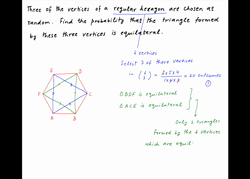 Three of the vertices of a regular hexagon are chosen at
random. Find the probability that the triangle formed
by these three vertices is equilateral.
6 vertices
Select 3 of these vertices
in (6 3) = 6x5x4 / 1x2x3 = 20 outcomes
①
△BDF is equilateral
△ACE is equilateral
Only 2 triangles
formed by the 6 vertices
which are equil
E
D
F
C
A
B